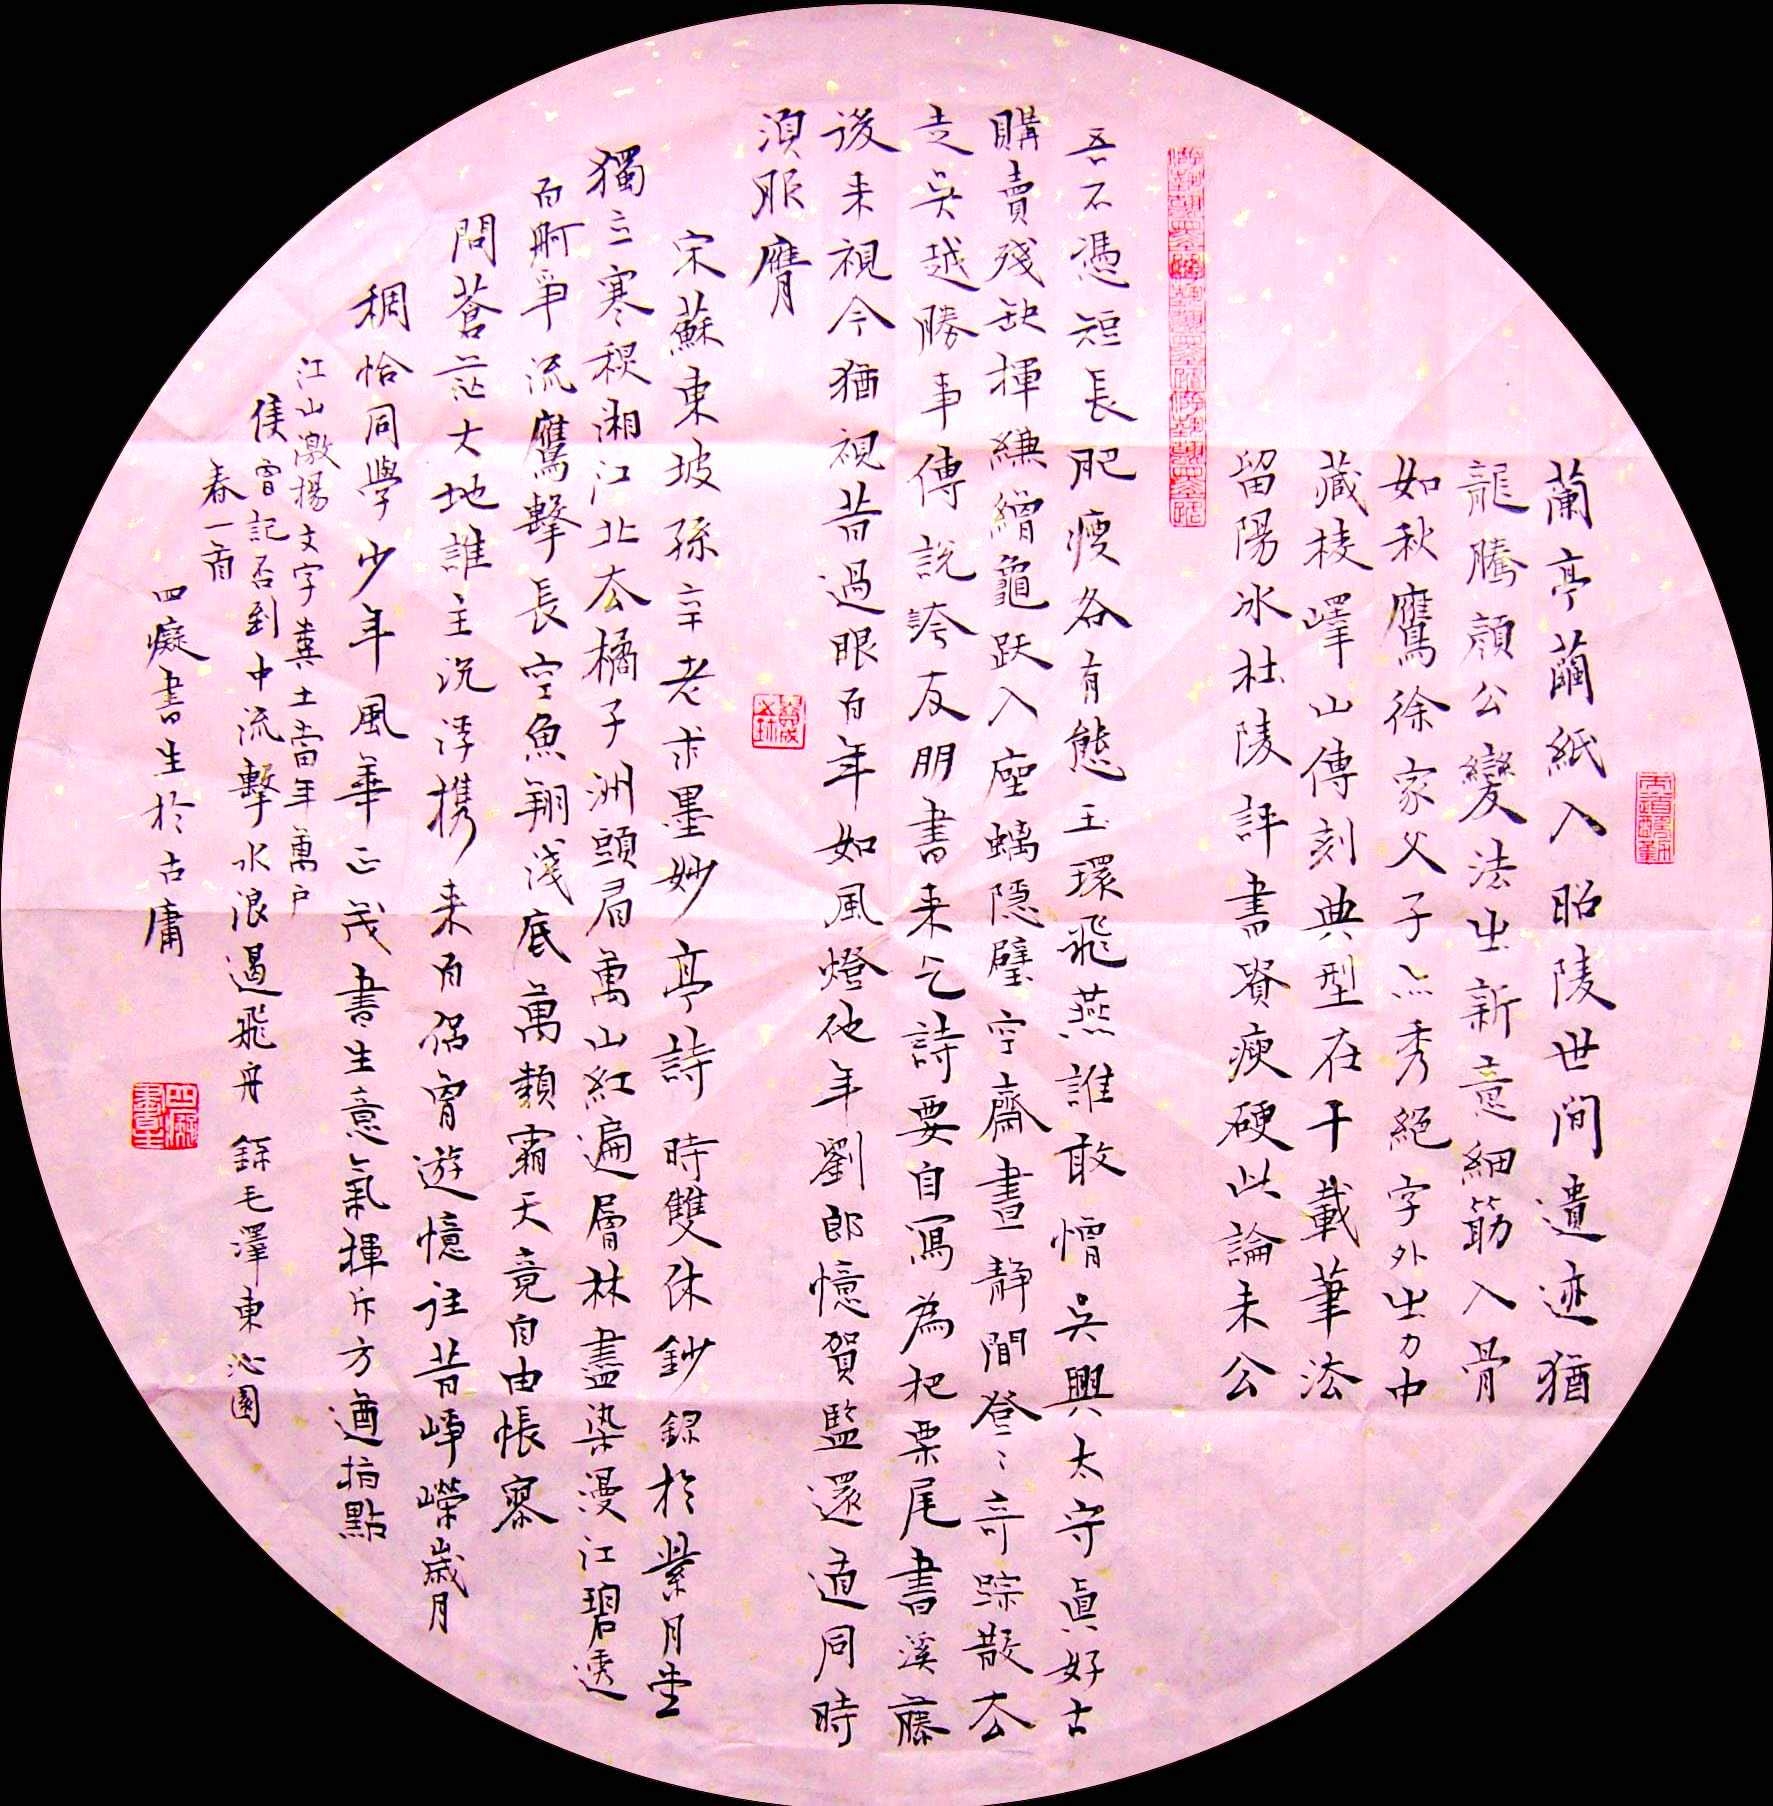 蘭亭繭紙入昭陵世間遺迹猶
龍騰顏公變法出新意細筋入骨
如秋鷹徐家父子亦秀絕字外出力中
藏棱嶧山傳刻典型在千載筆法
留陽冰杜陵評書貴瘦硬此論未公
吾不憑短長肥瘦各有態玉環飛燕誰敢憎吳興太守真好古
購買殘缺揮縑繒龜趺入座螭隱壁空齋晝静聞登〻奇踪散去
走吳越勝事傳說誇友朋書来乞詩要自寫為把栗尾書溪藤
後来視今猶視昔過眼百年如風燈他年劉郎憶賀監還道同時
須服膺
宋蘇東坡孫莘老求墨妙亭詩 時雙休鈔錄於縈月堂
獨立寒秋湘江北去橘子洲頭看萬山紅遍層林盡染漫江碧透
百舸爭流鷹擊長空魚翔淺底萬類霜天竟自由悵寥
問蒼茫大地誰主沉浮携来百侶曾遊憶往昔崢嶸歲月
稠恰同學少年風華正茂書生意氣揮斥方遒指點
江山激揚文字糞土當年萬户
侯曾記否到中流擊水浪遏飛舟 錄毛澤東沁園
春一首
四癡書生於古庸
四癡書生